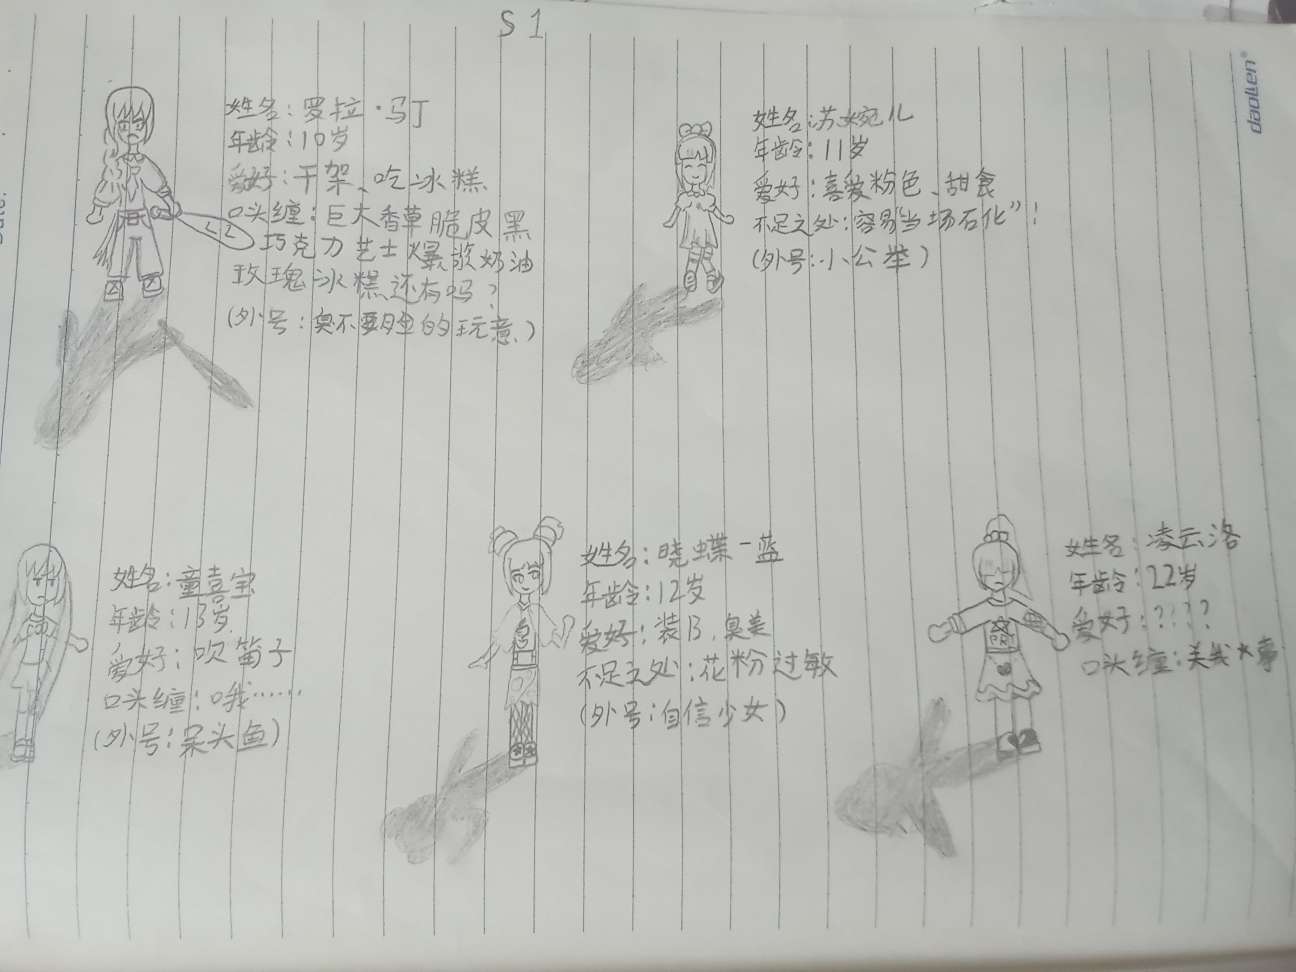 S1
daolen
姓名：罗拉·马丁
年龄：10岁
爱好：干架、吃冰糕
口头缠：巨大香草脆皮黑
巧克力芝士爆浆奶油
玫瑰冰糕还有吗？
(外号：臭不要脸的玩意、)
姓名：苏婉儿
年龄：11岁
爱好：喜爱粉色、甜食
不足之处：容易“当场石化”！
(外号：小公举)
姓名：童喜宝
年龄：13岁
爱好：吹笛子
口头缠：哦……
(外号：呆头鱼)
姓名：晓蝶一蓝
年龄：12岁
爱好：装B、臭美
不足之处：花粉过敏
(外号：自信少女)
姓名：凌云洛
年龄：22岁
爱好：？？？？
口头缠：关我大事